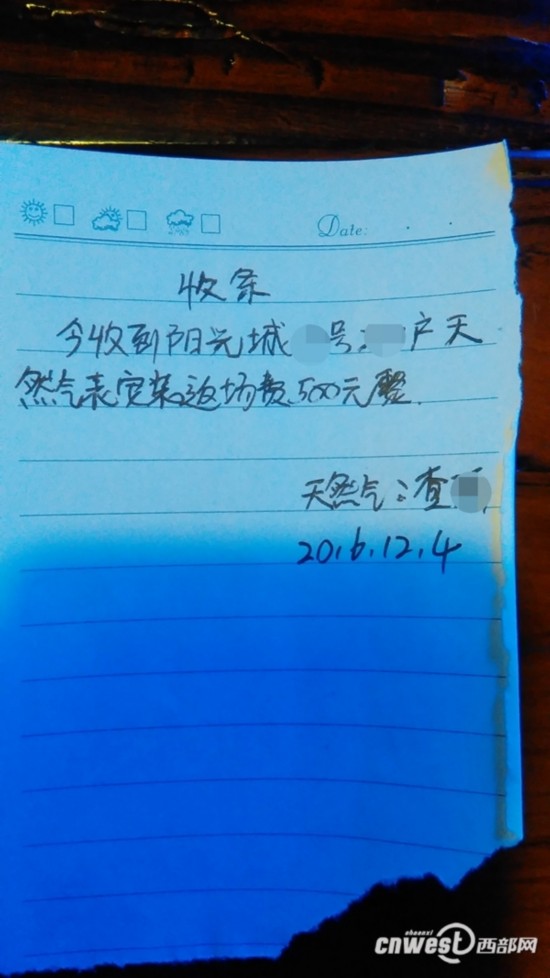 Date:
收条
今收到阳光城号户天
然气表安装返场费500元整.
天然气:查
2016.12.4
shaanxi
cnwest西部网